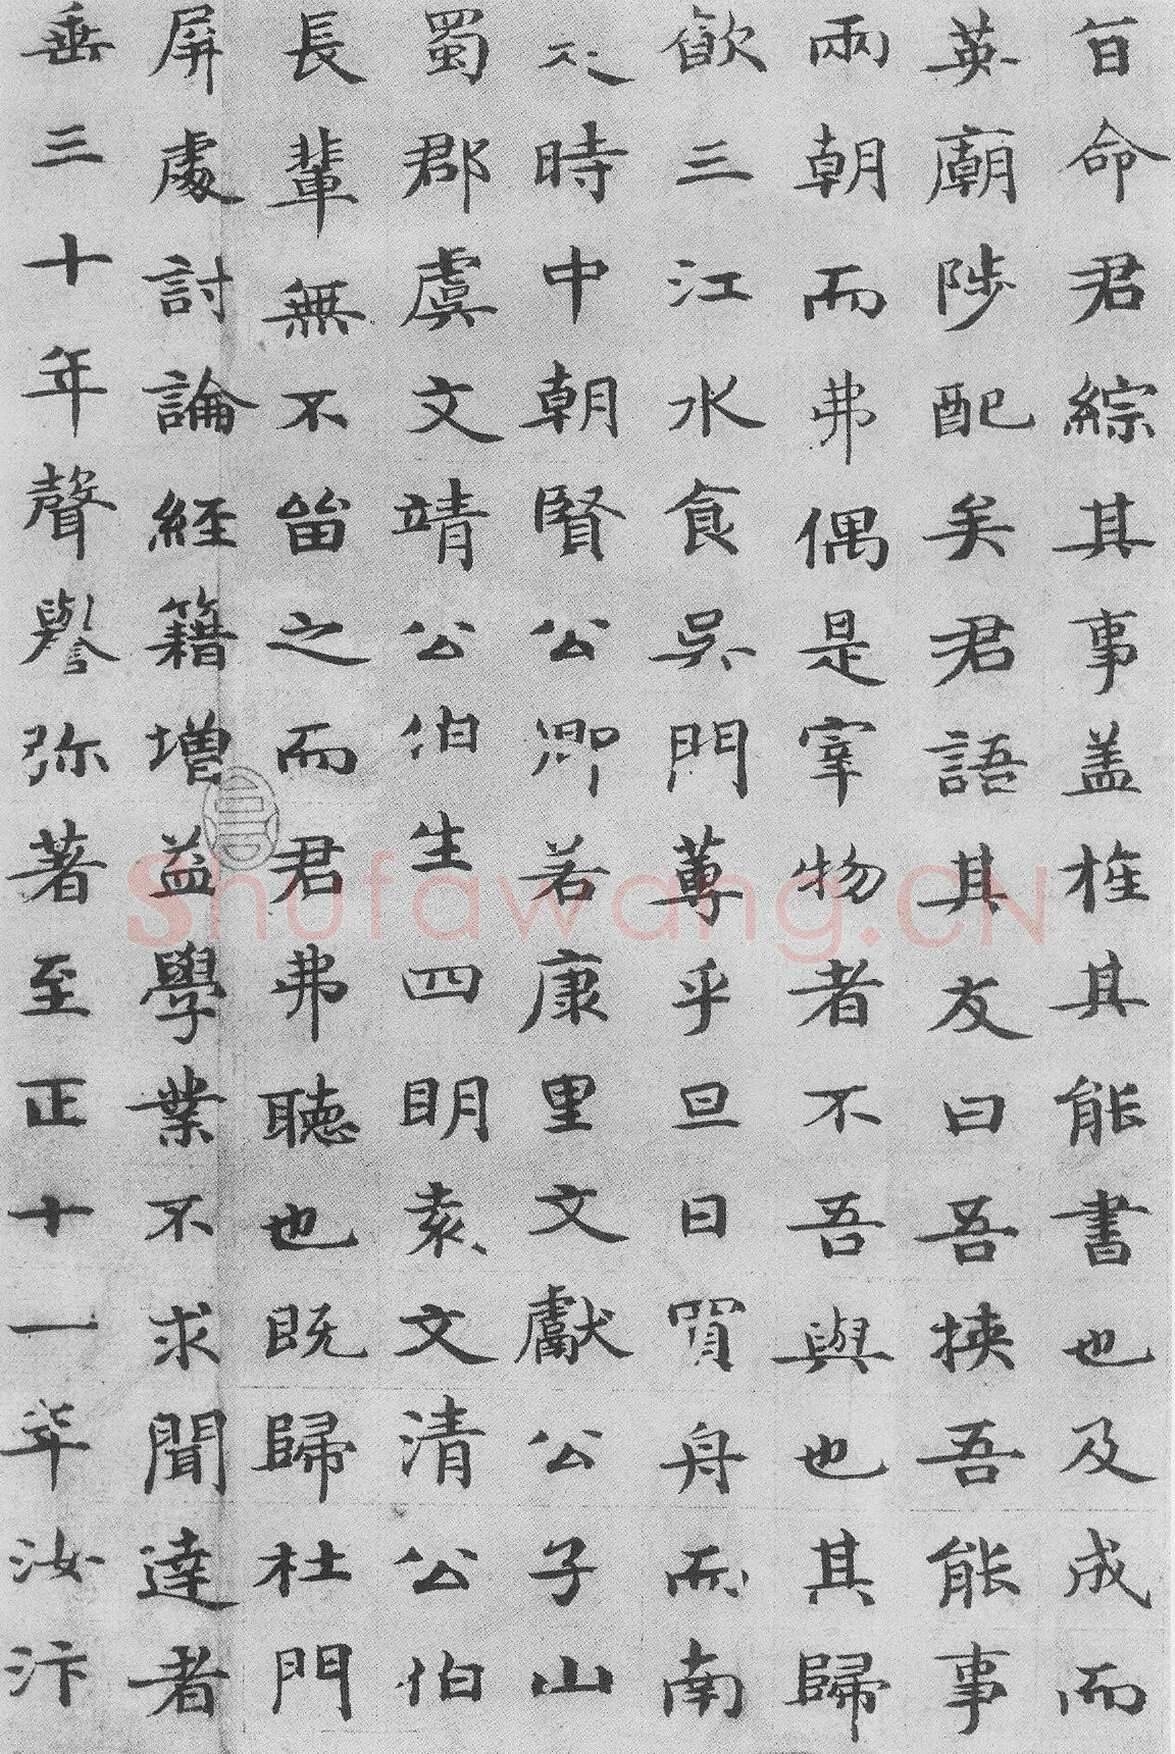 百命君綜其事盖旌其能書也及成而
英廟陟配矣君語其友曰吾挟吾能事
兩朝而弗偶是宰物者不吾與也其歸
歃三江水食吳門蓴乎旦日買舟而南
𣥂時中朝賢公卿若康里文獻公子山
蜀郡虞文靖公伯生四明袁文清公伯
長輩無不畱之而君弗聽也既歸杜門
屏處討論經籍增益學業不求聞達者
垂三十年聲譽弥著至正十一年汝汴
Shufawang.CN